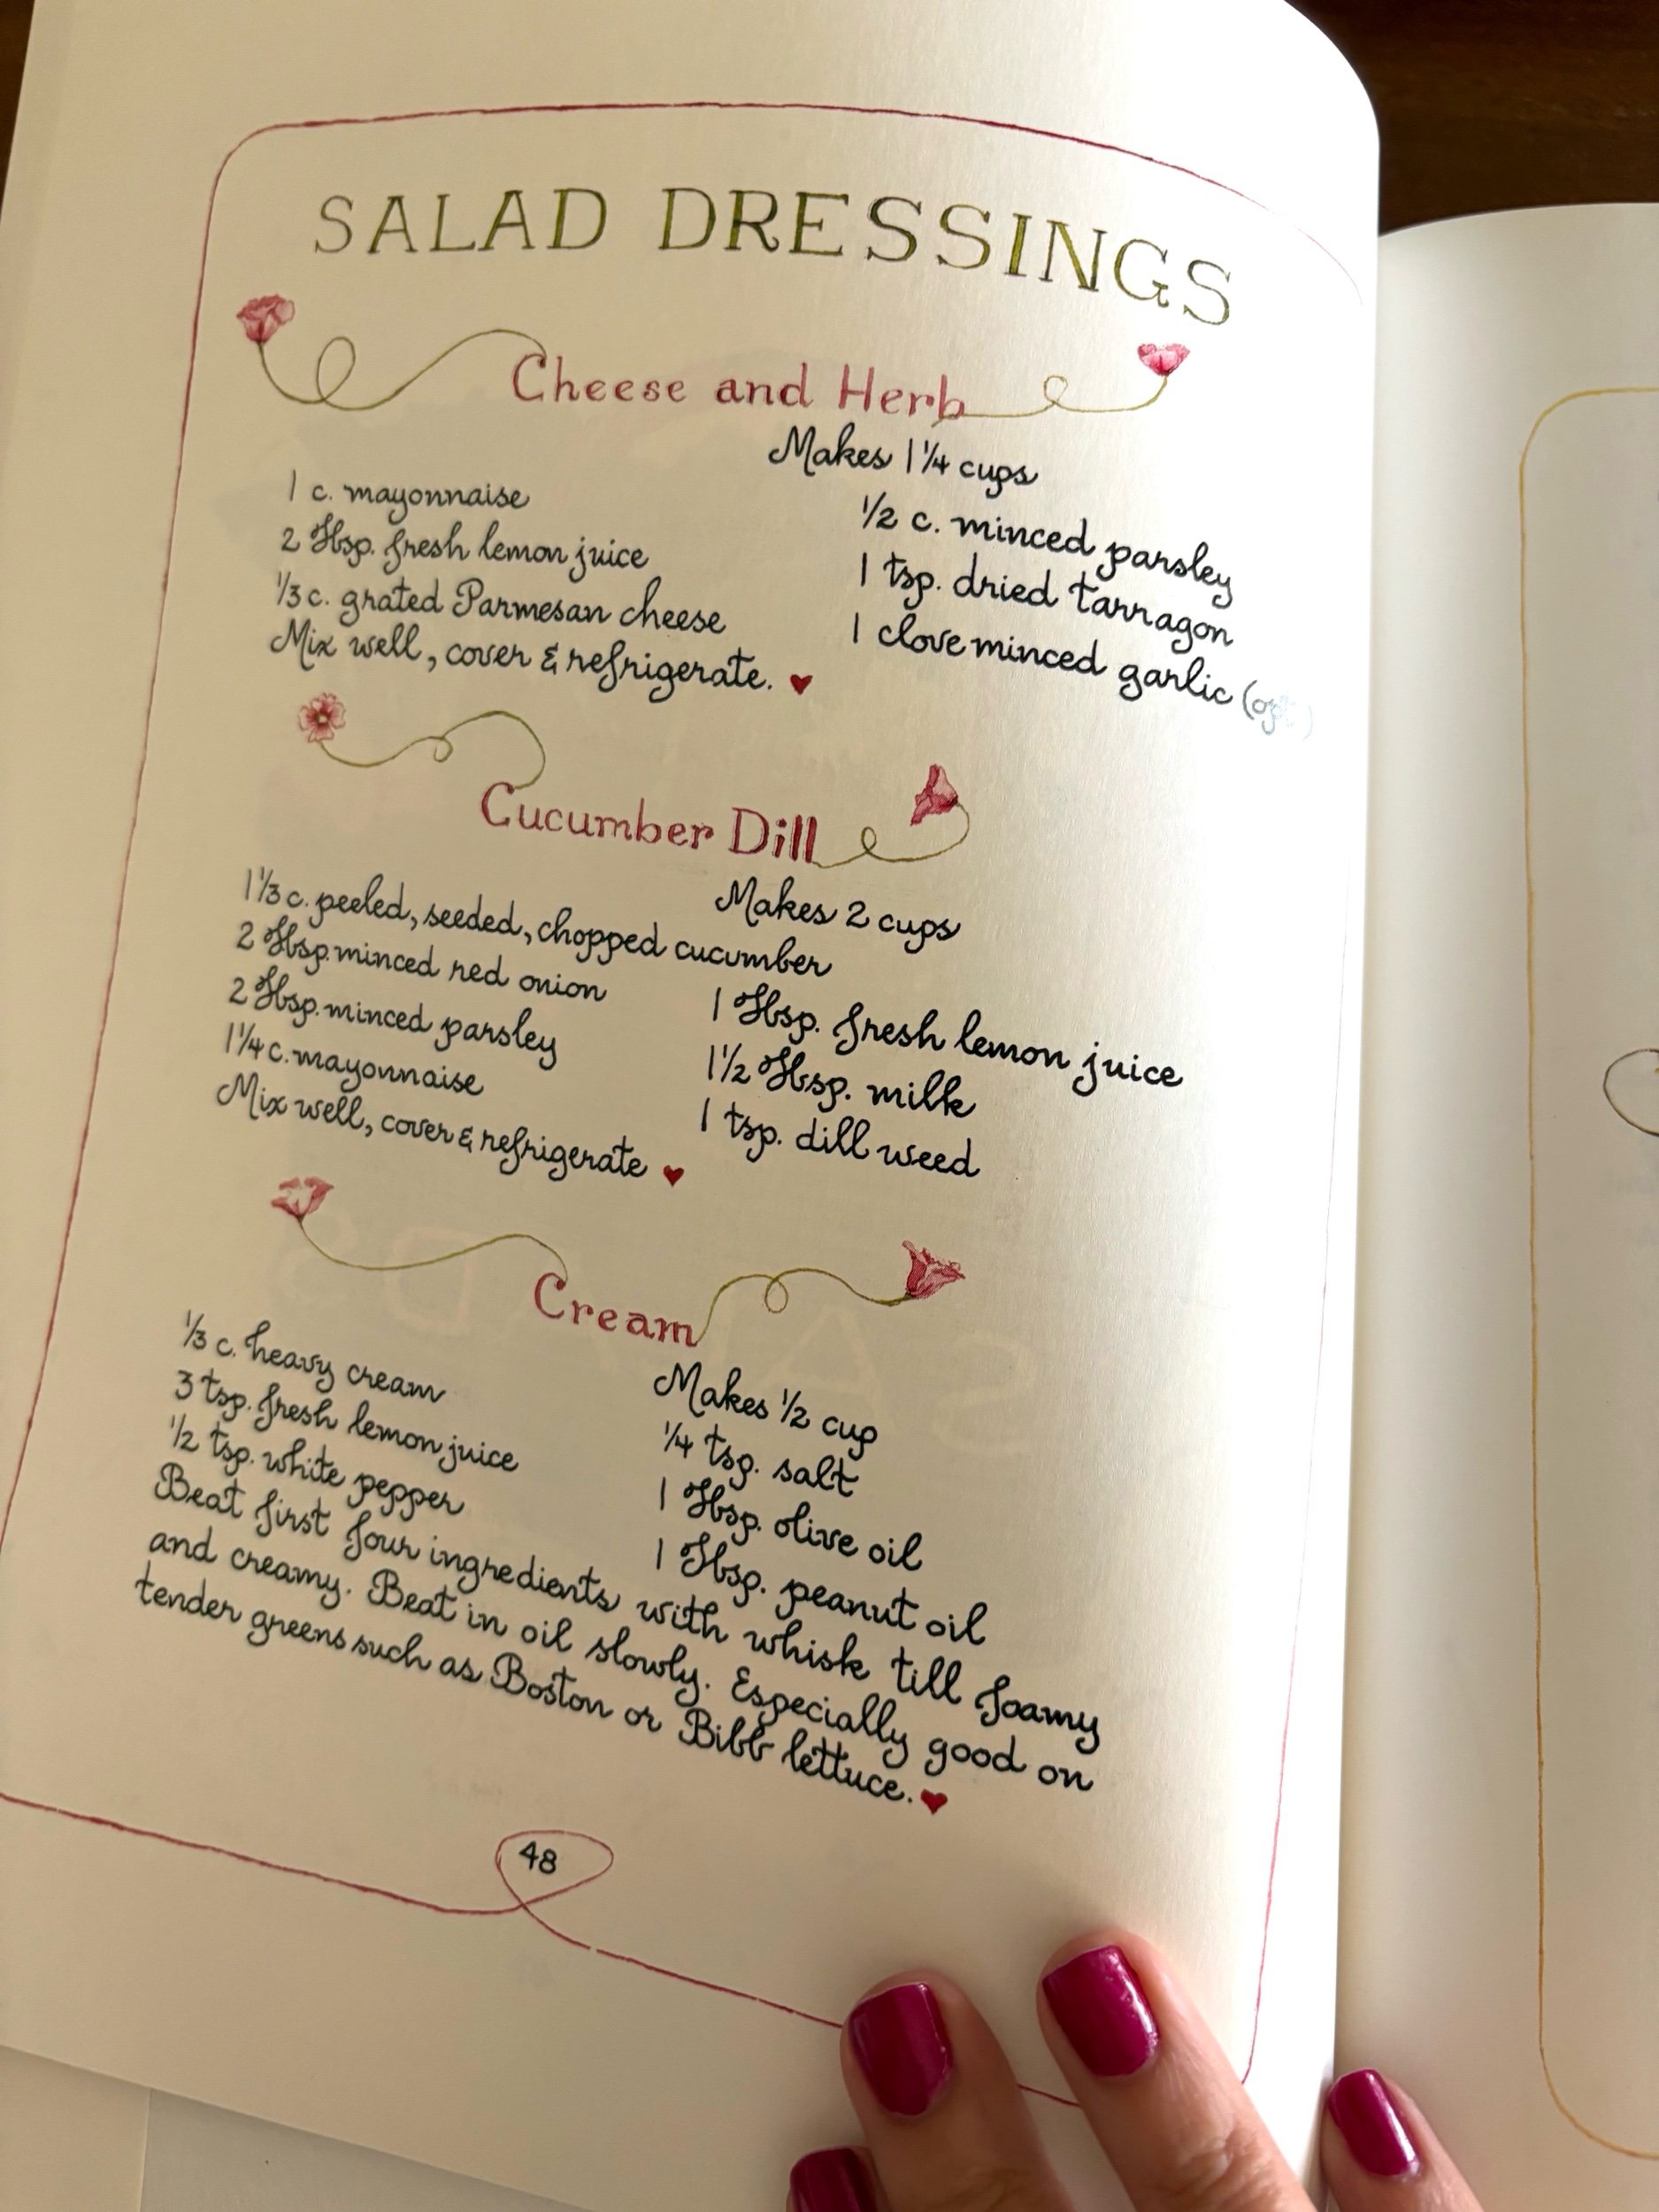 SALAD DRESSINGS
Cheese and Herb
Makes 1 1/4 cups
1 c. mayonnaise
2 Tbsp. fresh lemon juice
1/3 c. grated Parmesan cheese
1/2 c. minced parsley
1 tsp. dried tarragon
1 clove minced garlic (opt.)
Mix well, cover & refrigerate. ♥
Cucumber Dill
Makes 2 cups
1 1/3 c. peeled, seeded, chopped cucumber
2 Tbsp. minced red onion
2 Tbsp. minced parsley
1 1/4 c. mayonnaise
1 Tbsp. fresh lemon juice
1 1/2 Tbsp. milk
1 tsp. dill weed
Mix well, cover & refrigerate ♥
Cream
Makes 1/2 cup
1/3 c. heavy cream
3 tsp. fresh lemon juice
1/2 tsp. white pepper
1/4 tsp. salt
1 Tbsp. olive oil
1 Tbsp. peanut oil
Beat first four ingredients with whisk till foamy
and creamy. Beat in oil slowly. Especially good on
tender greens such as Boston or Bibb lettuce. ♥
48